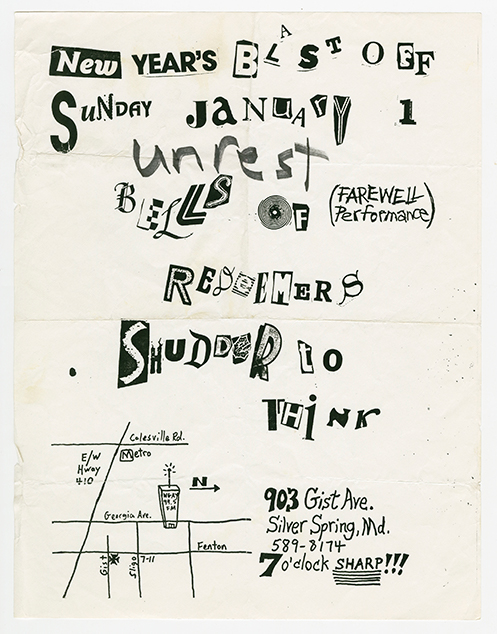 New YEAR'S BLAST OFF
SUNDAY JANUARY 1
unrest
BELLS OF (FAREWELL Performance)
REDEEMERS
SHUDDER to
THiNK
Colesville Rd.
E/W Hway 410
Metro
N
Georgia Ave.
Fenton
Gist
Sligo
7-11
903 Gist Ave.
Silver Spring, Md.
589-8174
7 o'clock SHARP!!!